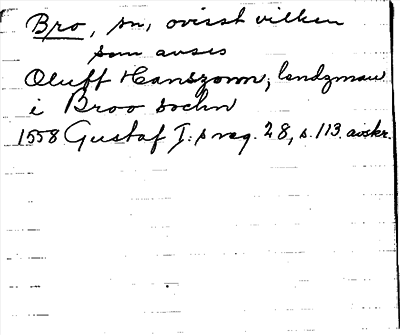 Bro, sn, ovisst vilken
som avses
Oluff Hanszonn, landzman
i Broo sochn
1558 Gustaf I:s reg. 28, s. 113. avskr.